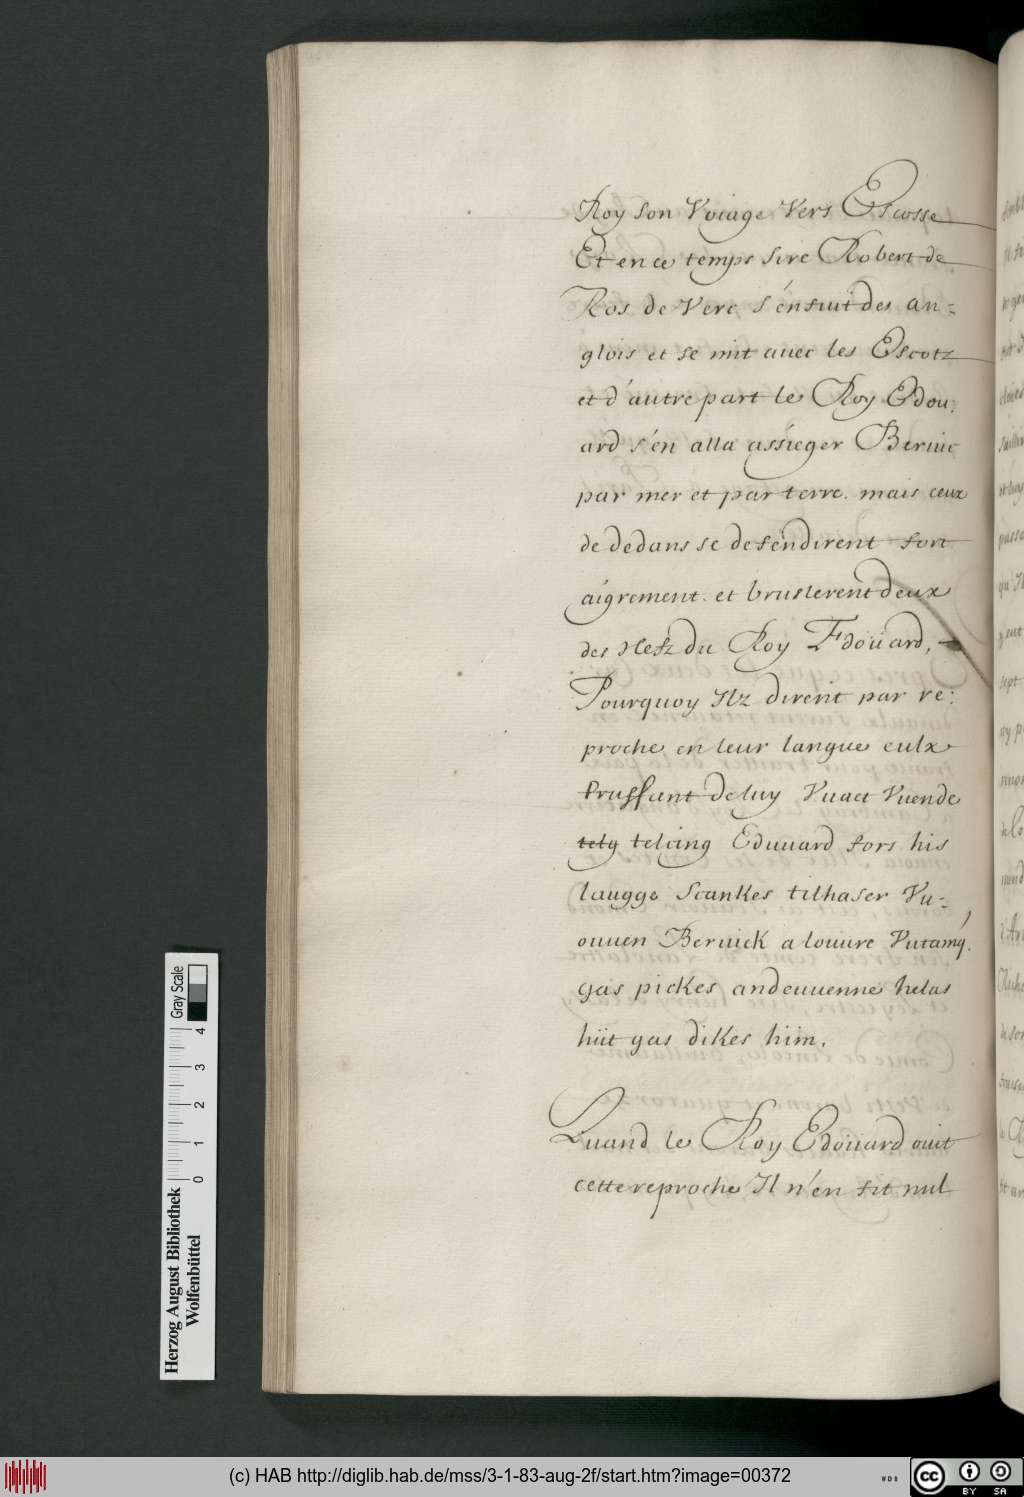 Roy son Voiage Vers Escosse
Et en ce temps sire Robert de
Ros de Verc s'ensuit des an-
glois et se mit avec les Escotz
et d'autre part le Roy Edou.
ard s'en alla assieger Beruic
par mer et par terre. mais ceux
de dedans se defendirent fort
aigrement. et bruslerent deux
des Nefz du Roy Edoüard,
Pourquoy Ilz dirent par re:
proche en leur langue eulx
truffant de luy Vuaet Vuende
tely telcing Eduuard fors his
laugge Scankes tilhaser Vu-
ouuen Beruick a louure Vutamq'.
gas pickes andeuuenne helas
hiit gas dikes him.
Quand le Roy Edoüard ouit
cette reproche Il n'en fit nul
Herzog August Bibliothek
Wolfenbüttel
0 1 2 3 4
Gray Scale
(c) HAB http://diglib.hab.de/mss/3-1-83-aug-2f/start.htm?image=00372
cc BY SA